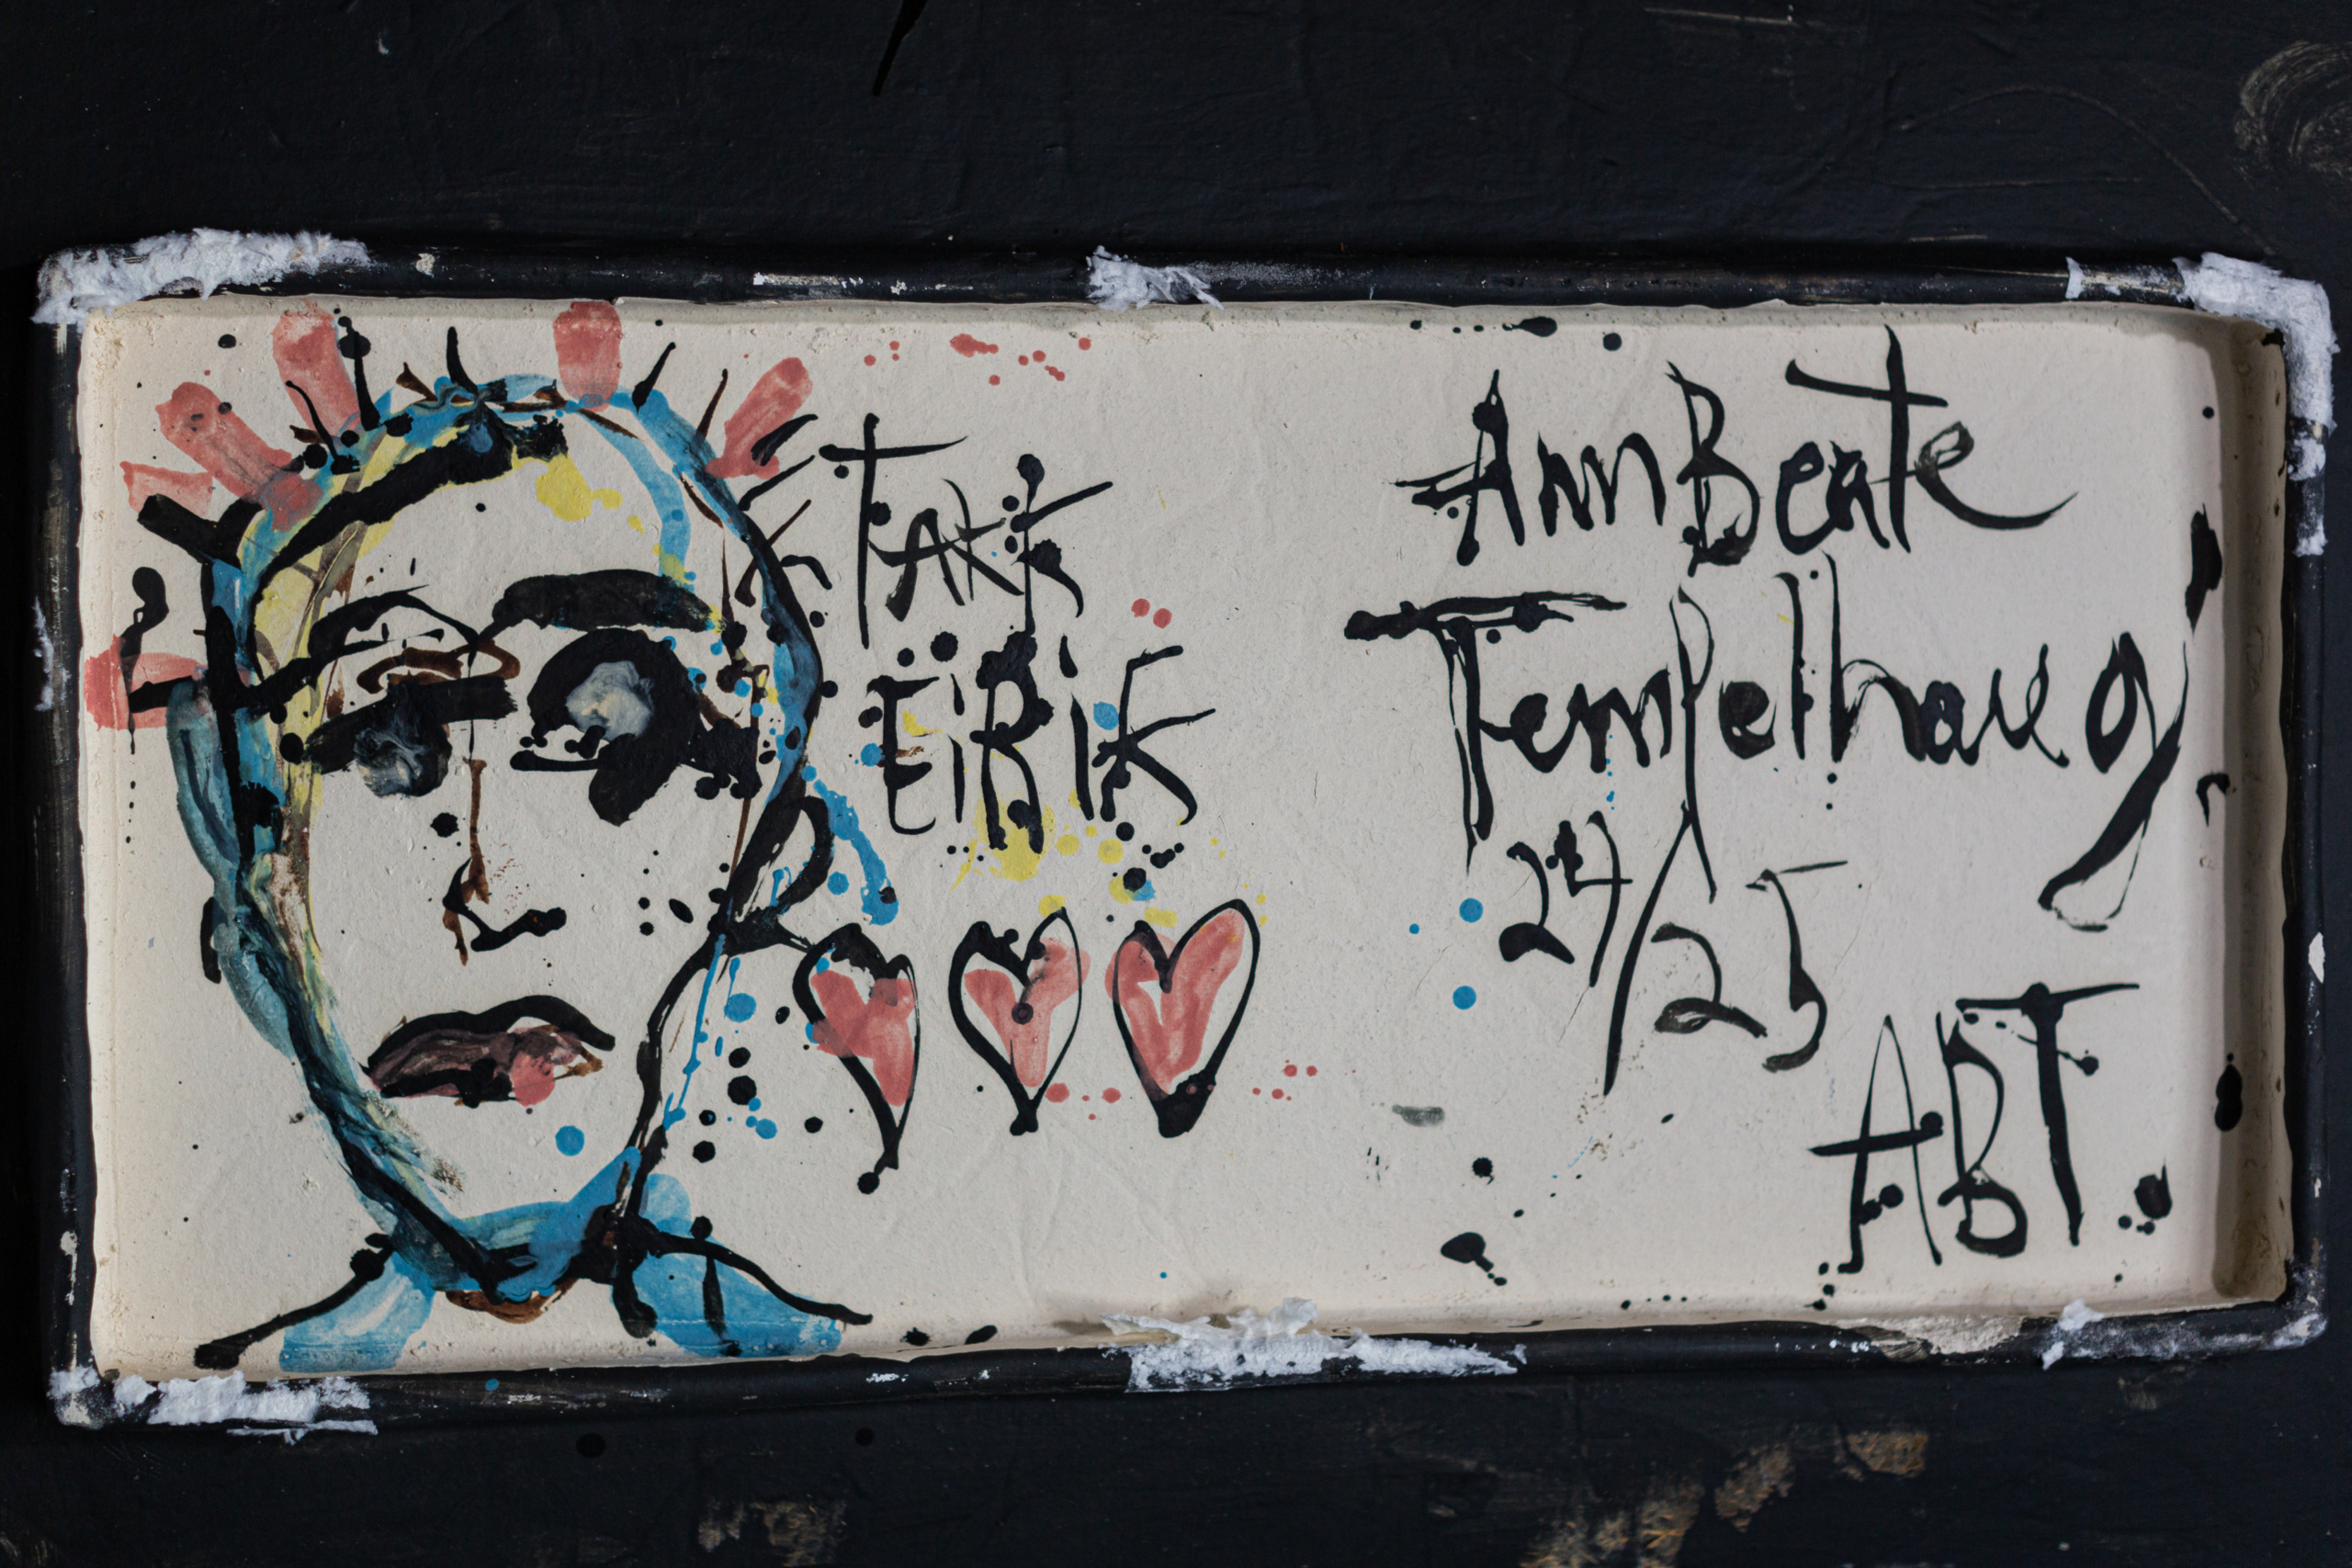 TAKK
EiRiK
AnnBeate
Tempelhaug
24/25
ABT